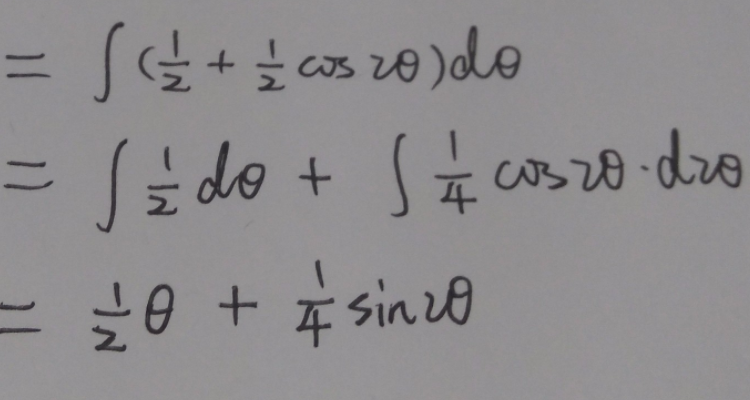 = ∫(1/2 + 1/2 cos2θ)dθ
= ∫ 1/2 dθ + ∫ 1/4 cos2θ·d2θ
= 1/2 θ + 1/4 sin2θ